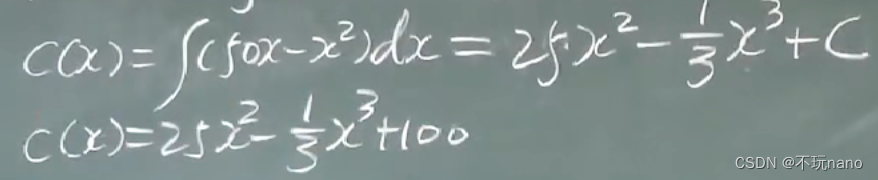 C(x)=∫(50x-x²)dx=25x²-⅓x³+C
C(x)=25x²-⅓x³+100
CSDN @不玩nano